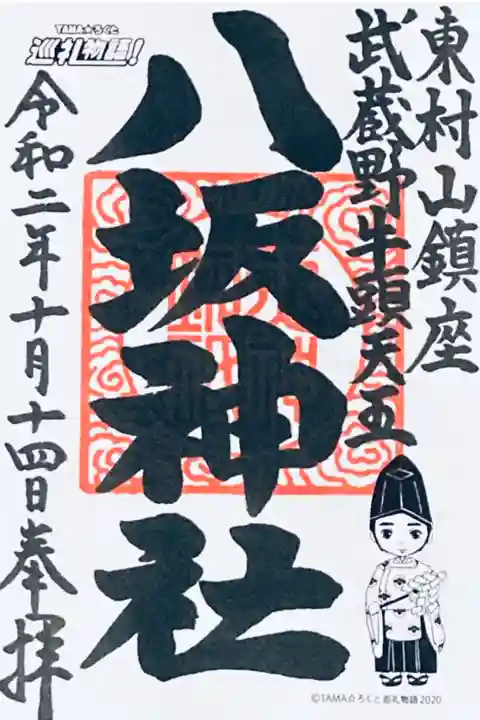 東村山鎮座
武蔵野牛頭天王
八坂神社
令和二年十月十四日奉拝
TAMA☆ろくと
巡礼物語!
©TAMA☆ろくと巡礼物語 2020